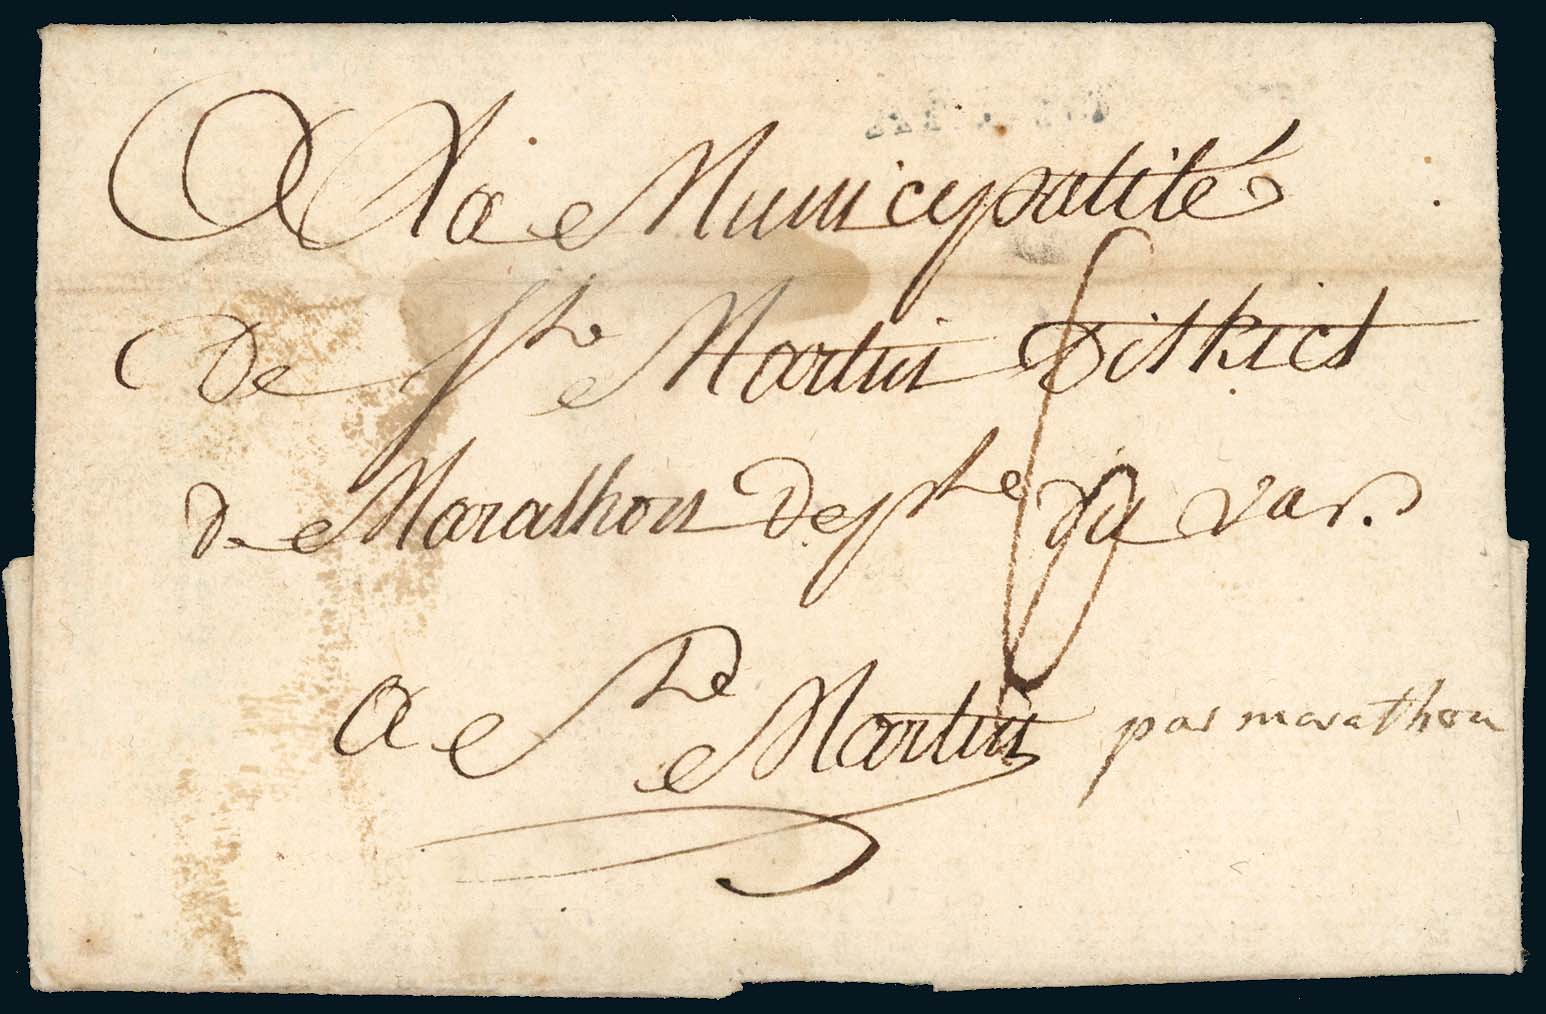 A La Municipalité
De Ste Martin District
de Marathon Depte du var.
a Ste Martin par marathon